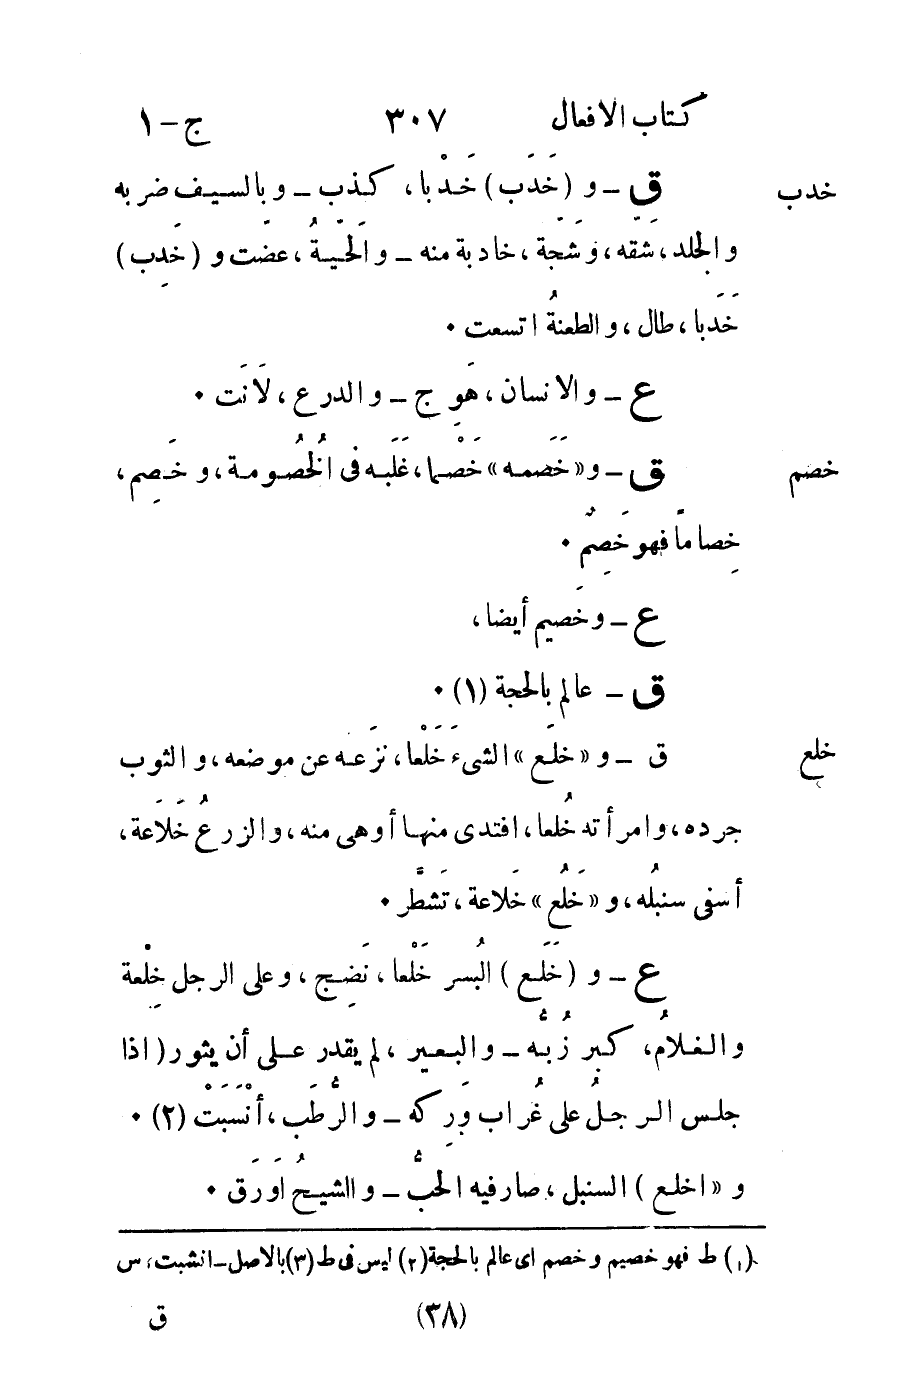 كتاب الافعال ٣٠٧ ج-١
خدب ق - و (خَدَب) خَدْبا، كذب - و بالسيف ضربه
و الجلد، شقه، و شجة، خادبة منه - و الحَيّةُ، عضّت و (خَدِب)
خَدَبا، طال، و الطعنةُ اتسعت ٠
ع - و الانسان، هَوِج - و الدرع، لَانَت ٠
خصم ق - و «خَصَمه» خَصْما، غَلَبه فى الخُصُومة، و خَصِم،
خِصاماً فهو خَصِمٌ ٠
ع - و خَصيم أيضا،
ق - عالم بالحجة (١) ٠
خلع ق - و «خلَع» الشىءَ خَلْعا، نزَعه عن موضعه، و الثوب
جرده، و امرأته خُلعا، افتدى منها أو هى منه، و الزرعُ خَلَاعة،
أسفى سنبُله، و «خَلُع» خَلاعة، تَشطَّر ٠
ع - و (خَلَع) البُسر خَلْعا، نَضِج، و على الرجل خِلْعة
و الغلامُ، كبر زُبُّه - و البعير، لم يقدر على أن يثور (اذا
جلس الرجلُ على غُراب وَرِكه - و الرُّطَب، أنْسَبَتْ (٢) ٠
و «اخلع) السنبل، صار فيه الحبُّ - و الشيحُ اَورَق ٠
(١) ط فهو خصيم و خصم اى عالم بالحجة (٢) ليس فى ط (٣) بالاصل - انشبت، س
(٣٨) ق